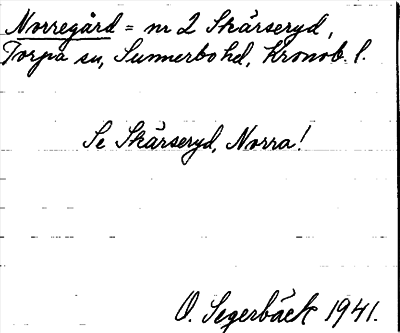 Norregård = nr 2 Skärseryd,
Torpa sn, Sunnerbo hd, Kronob. l.
Se Skärseryd, Norra!
O. Segerbäck 1941.